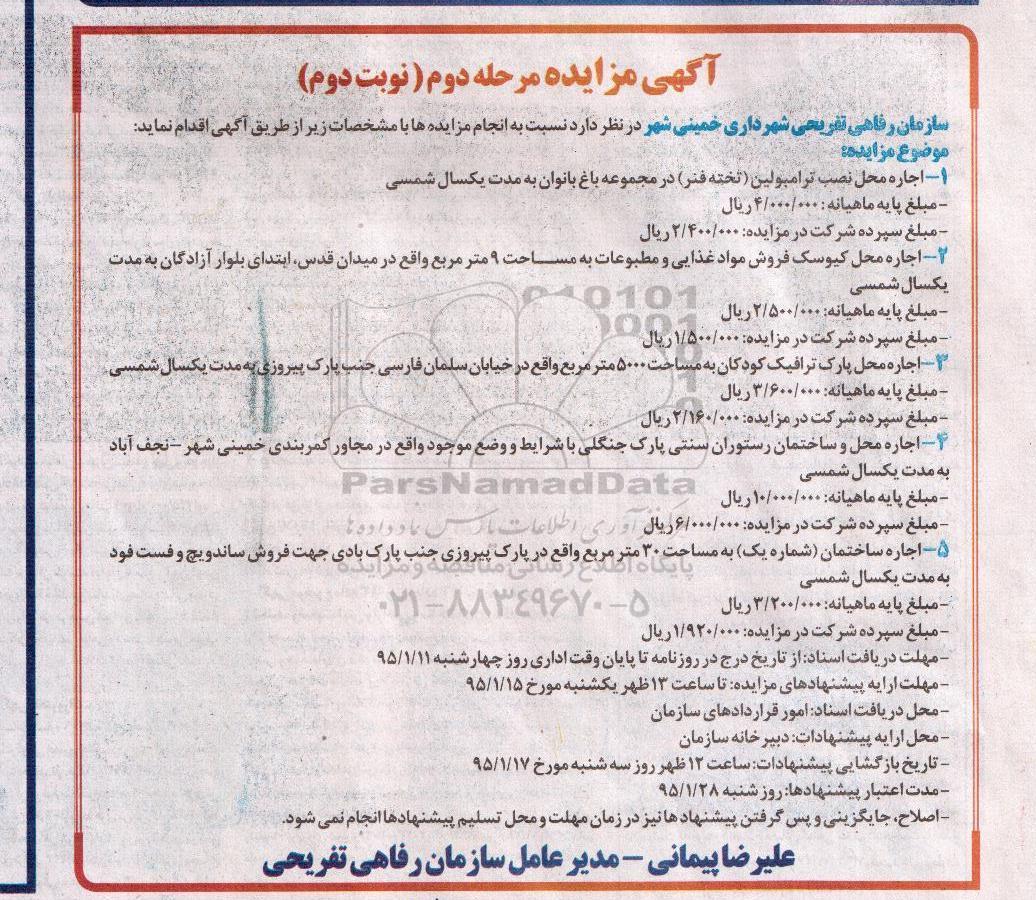 آگهی مزایده مرحله دوم (نوبت دوم)
سازمان رفاهی تفریحی شهرداری خمینی شهر در نظر دارد نسبت به انجام مزایده ها با مشخصات زیر از طریق آگهی اقدام نماید:
موضوع مزایده:
۱- اجاره محل نصب ترامپولین (تخته فنر) در مجموعه باغ بانوان به مدت یکسال شمسی
- مبلغ پایه ماهیانه: ۴/۰۰۰/۰۰۰ ریال
- مبلغ سپرده شرکت در مزایده: ۲/۴۰۰/۰۰۰ ریال
۲- اجاره محل کیوسک فروش مواد غذایی و مطبوعات به مساحت ۹ متر مربع واقع در میدان قدس، ابتدای بلوار آزادگان به مدت
یکسال شمسی
- مبلغ پایه ماهیانه: ۲/۵۰۰/۰۰۰ ریال
- مبلغ سپرده شرکت در مزایده: ۱/۵۰۰/۰۰۰ ریال
۳- اجاره محل پارک ترافیک کودکان به مساحت ۵۰۰۰ متر مربع واقع در خیابان سلمان فارسی جنب پارک پیروزی به مدت یکسال شمسی
- مبلغ پایه ماهیانه: ۳/۶۰۰/۰۰۰ ریال
- مبلغ سپرده شرکت در مزایده: ۲/۱۶۰/۰۰۰ ریال
۴- اجاره محل و ساختمان رستوران سنتی پارک جنگلی با شرایط و وضع موجود واقع در مجاور کمربندی خمینی شهر - نجف آباد
به مدت یکسال شمسی
- مبلغ پایه ماهیانه: ۱۰/۰۰۰/۰۰۰ ریال
- مبلغ سپرده شرکت در مزایده: ۶/۰۰۰/۰۰۰ ریال
۵- اجاره ساختمان (شماره یک) به مساحت ۳۰ متر مربع واقع در پارک پیروزی جنب پارک بادی جهت فروش ساندویچ و فست فود
به مدت یکسال شمسی
- مبلغ پایه ماهیانه: ۳/۲۰۰/۰۰۰ ریال
- مبلغ سپرده شرکت در مزایده: ۱/۹۲۰/۰۰۰ ریال
- مهلت دریافت اسناد: از تاریخ درج در روزنامه تا پایان وقت اداری روز چهارشنبه ۹۵/۱/۱۱
- مهلت ارایه پیشنهادهای مزایده: تا ساعت ۱۳ ظهر یکشنبه مورخ ۹۵/۱/۱۵
- محل دریافت اسناد: امور قراردادهای سازمان
- محل ارایه پیشنهادات: دبیرخانه سازمان
- تاریخ بازگشایی پیشنهادات: ساعت ۱۲ ظهر روز سه شنبه مورخ ۹۵/۱/۱۷
- مدت اعتبار پیشنهادها: روز شنبه ۹۵/۱/۲۸
- اصلاح، جایگزینی و پس گرفتن پیشنهادها نیز در زمان مهلت و محل تسلیم پیشنهادها انجام نمی شود.
علیرضا پیمانی - مدیر عامل سازمان رفاهی تفریحی
ParsNamadData
پایگاه اطلاع رسانی مناقصه و مزایده
۰۲۱-۸۸۳۴۹۶۷۰-۵